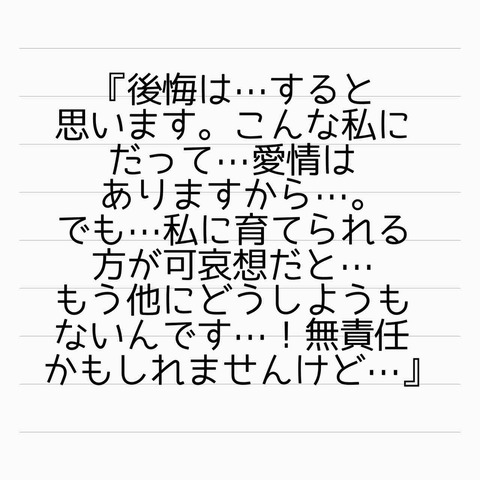 『後悔は…すると
思います。こんな私に
だって…愛情は
ありますから…。
でも…私に育てられる
方が可哀想だと…
もう他にどうしようも
ないんです…！無責任
かもしれませんけど…』